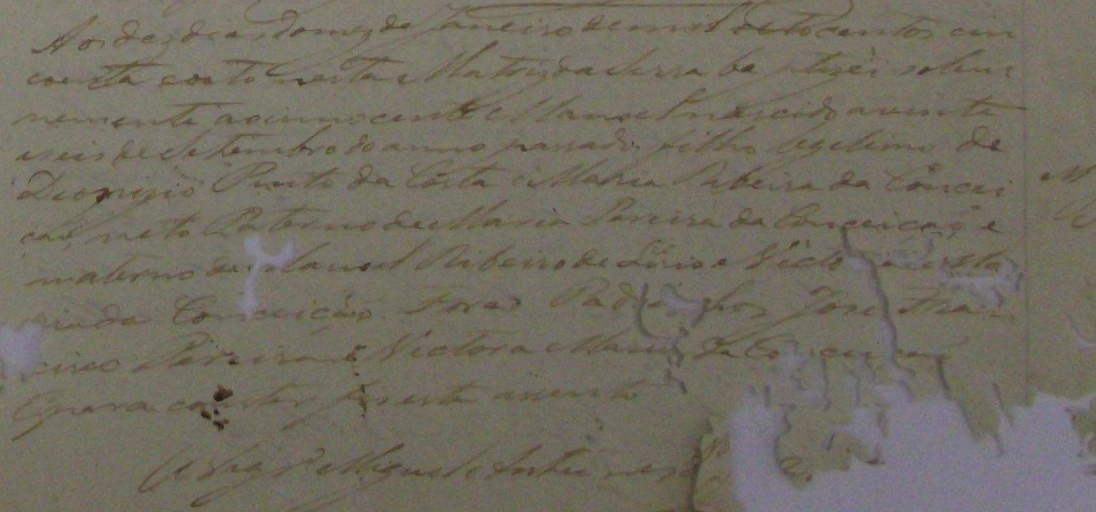 Aos dez dias do mez de Janeiro de mil oitocentos cin
coenta e oito nesta Matriz da Serra baptizei solem
nemente ao innocente Manoel nascido a vinte
e seis de Setembro do anno passado filho legitimo de
Dionizio Pinto da Costa e Maria Ribeira da Concei
cão, neto Paterno de Maria Pereira da Conceicão, e
materno de Manoel Ribeiro de e Victo
da Conceição forão Padrinhos José Fran
cisco Pereira e Victora Maria da Conceicão
E para constar fis este assento
O Vigrº Miguel